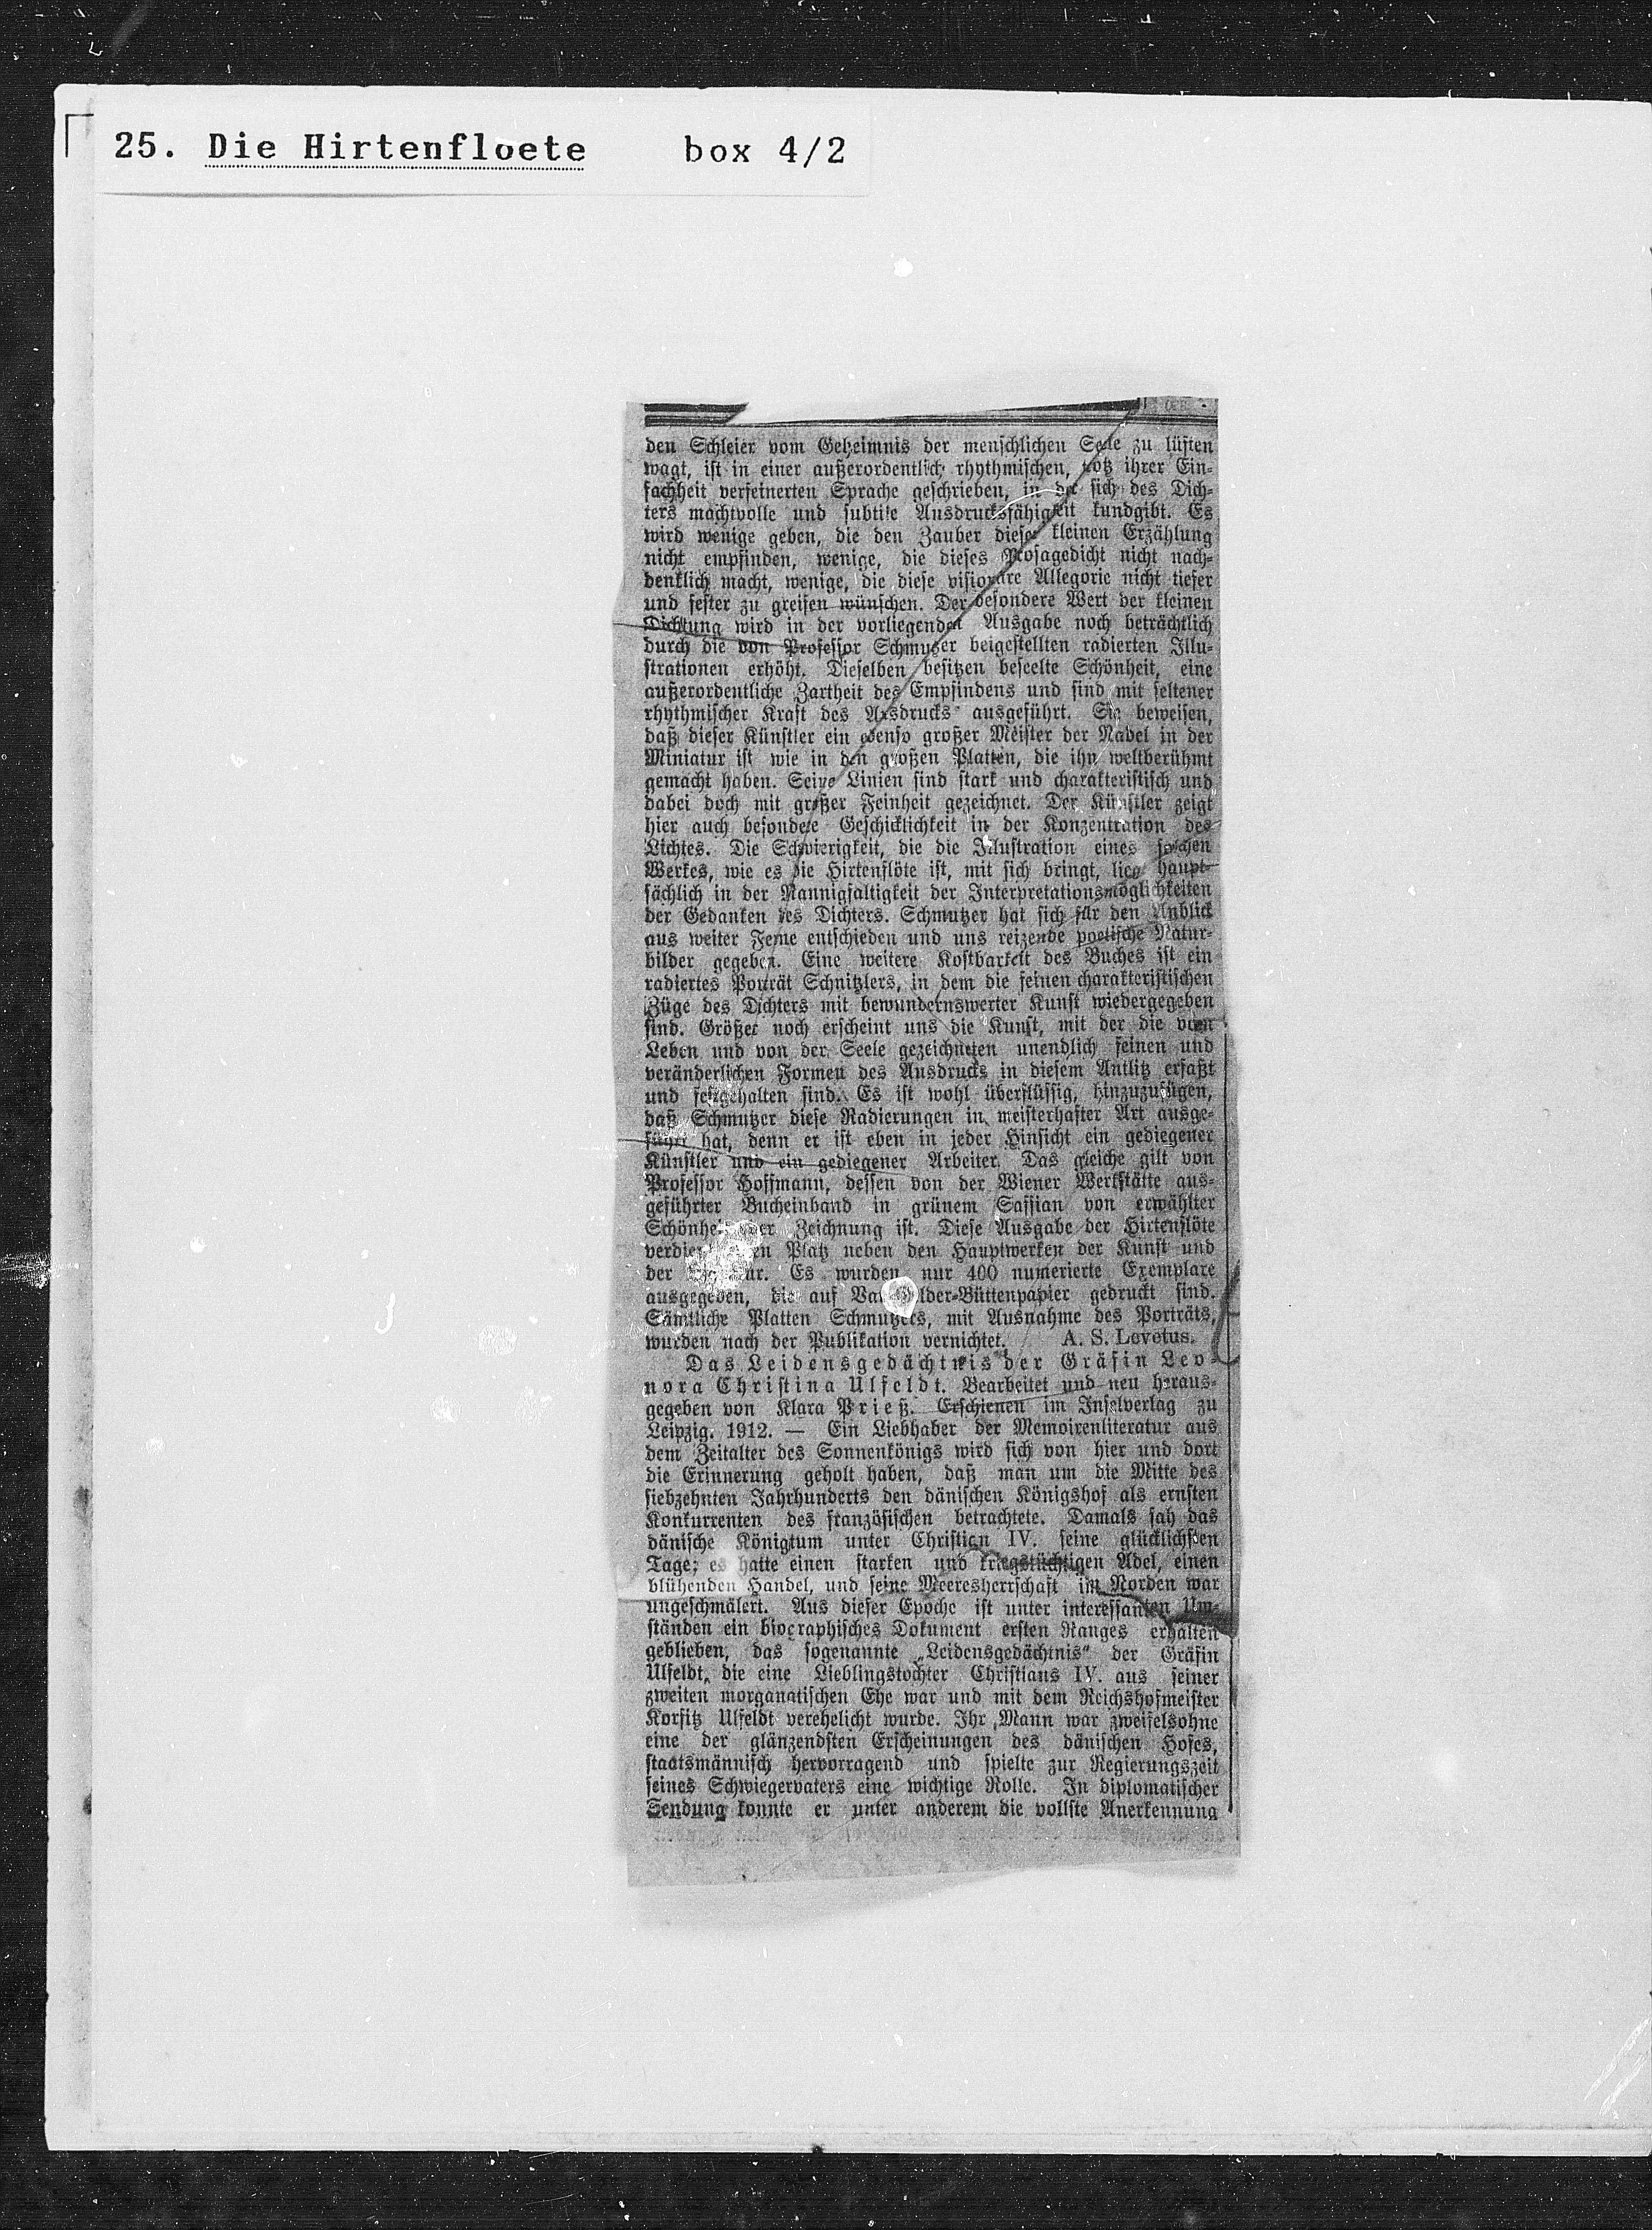 25. Die Hirtenfloete box 4/2
den Schleier vom Geheimnis der menschlichen Seele zu lüften
wagt, ist in einer außerordentlich rhythmischen, trotz ihrer Ein-
fachheit verfeinerten Sprache geschrieben, in der sich des Dich-
ters machtvolle und subtile Ausdrucksfähigkeit kundgibt. Es
wird wenige geben, die den Zauber dieser kleinen Erzählung
nicht empfinden, wenige, die dieses Prosagedicht nicht nach-
denklich macht, wenige, die diese visionäre Allegorie nicht tiefer
und fester zu greifen wünschen. Der besondere Wert der kleinen
Dichtung wird in der vorliegenden Ausgabe noch beträchtlich
durch die von Professor Schmutzer beigestellten radierten Illu-
strationen erhöht. Dieselben besitzen beseelte Schönheit, eine
außerordentliche Zartheit des Empfindens und sind mit seltener
rhythmischer Kraft des Ausdrucks ausgeführt. Sie beweisen,
daß dieser Künstler ein ebenso großer Meister der Nadel in der
Miniatur ist wie in den großen Platten, die ihn weltberühmt
gemacht haben. Seine Linien sind stark und charakteristisch und
dabei doch mit großer Feinheit gezeichnet. Der Künstler zeigt
hier auch besondere Geschicklichkeit in der Konzentration des
Lichtes. Die Schwierigkeit, die die Illustration eines solchen
Werkes, wie es die Hirtenflöte ist, mit sich bringt, haupt-
sächlich in der Mannigfaltigkeit der Interpretationsmöglichkeiten
der Gedanken des Dichters. Schmutzer hat sich für den Anblick
aus weiter Ferne entschieden und uns reizende poetische Natur-
bilder gegeben. Eine weitere Kostbarkeit des Buches ist ein
radiertes Porträt Schnitzlers, in dem die feinen charakteristischen
Züge des Dichters mit bewundernswerter Kunst wiedergegeben
sind. Größer noch erscheint uns die Kunst, mit der die vom
Leben und von der Seele gezeichneten unendlich feinen und
veränderlichen Formen des Ausdrucks in diesem Antlitz erfaßt
und festgehalten sind. Es ist wohl überflüssig, hinzuzufügen,
daß Schmutzer diese Radierungen in meisterhafter Art ausge-
führt hat, denn er ist eben in jeder Hinsicht ein gediegener
Künstler und ein gediegener Arbeiter. Das gleiche gilt von
Professor Hoffmann, dessen von der Wiener Werkstätte aus-
geführter Bucheinband in grünem Saffian von erwählter
Schönheit der Zeichnung ist. Diese Ausgabe der Hirtenflöte
verdient Platz neben den Hauptwerken der Kunst und
der Es wurden nur 400 numerierte Exemplare
ausgegeben, die auf Van Gelder-Büttenpapier gedruckt sind.
Sämtliche Platten Schmutzers, mit Ausnahme des Porträts,
wurden nach der Publikation vernichtet. A. S. Levetus.
Das Leidensgedächtnis der Gräfin Leo-
nora Christina Ulfeldt. Bearbeitet und neu heraus-
gegeben von Klara Prieß. Erschienen im Inselverlag zu
Leipzig. 1912. — Ein Liebhaber der Memoirenliteratur aus
dem Zeitalter des Sonnenkönigs wird sich von hier und dort
die Erinnerung geholt haben, daß man um die Mitte des
siebzehnten Jahrhunderts den dänischen Königshof als ernsten
Konkurrenten des französischen betrachtete. Damals sah das
dänische Königtum unter Christian IV. seine glücklichsten
Tage; es hatte einen starken und kriegstüchtigen Adel, einen
blühenden Handel, und seine Meeresherrschaft im Norden war
ungeschmälert. Aus dieser Epoche ist unter interessanten Um-
ständen ein biographisches Dokument ersten Ranges erhalten
geblieben, das sogenannte „Leidensgedächtnis" der Gräfin
Ulfeldt, die eine Lieblingstochter Christians IV. aus seiner
zweiten morganatischen Ehe war und mit dem Reichshofmeister
Korfitz Ulfeldt verehelicht wurde. Ihr Mann war zweifelsohne
eine der glänzendsten Erscheinungen des dänischen Hofes,
staatsmännisch hervorragend und spielte zur Regierungszeit
seines Schwiegervaters eine wichtige Rolle. In diplomatischer
Sendung konnte er unter anderem die vollste Anerkennung